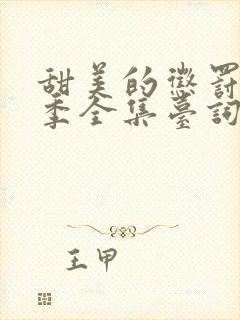 甜美的懲罰
季全集臺詞
王甲